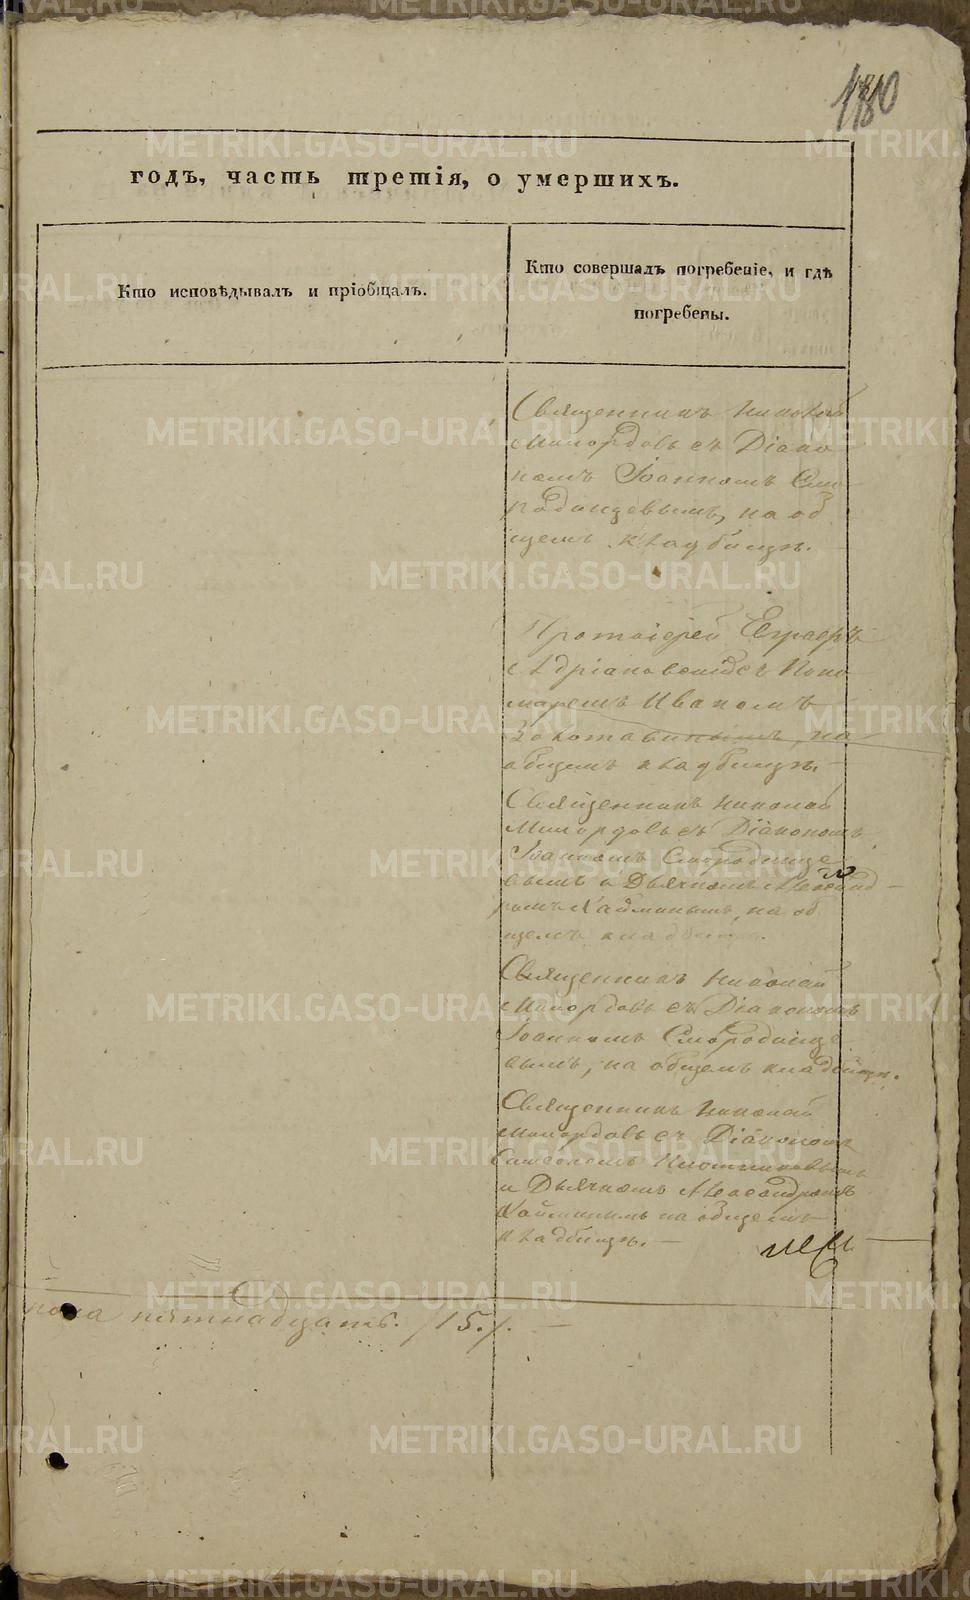 180
годъ, часть третія, о умершихъ.
Кто исповѣдывалъ и пріобщалъ.
Кто совершалъ погребеніе, и гдѣ
погребены.
Священникъ Николай
Милордовъ съ Діако
номъ Іоанномъ Смо
родинцевымъ, на об
щемъ кладбищѣ.
Протоіерей Егаеръ
Адріановскій съ Поно
маремъ Иваномъ
на
общемъ кладбищѣ.
Священникъ Николай
Милордовъ съ Діакономъ
Іоанномъ Смородинце
вымъ и Дьячкомъ Александ
ромъ Хайминымъ, на об
щемъ кладбищѣ.
Священникъ Николай
Милордовъ съ Діакономъ
Іоанномъ Смородинце
вымъ, на общемъ кладбищѣ.
Священникъ Николай
Милордовъ съ Діакономъ
Симеономъ Плотниковымъ
и Дьячкомъ Александромъ
Хайминымъ на общемъ
кладбищѣ.
пола пятнадцать. /15./.
METRIKI.GASO-URAL.RU